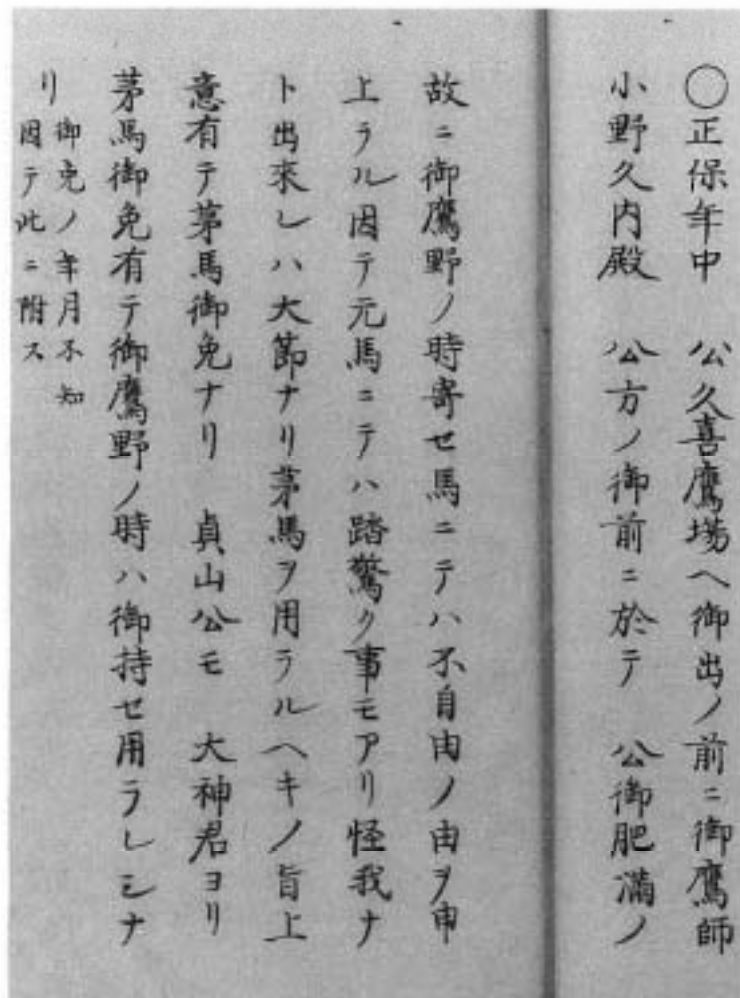 〇正保年中　公久喜鷹場へ御出ノ前ニ御鷹師
小野久内殿　公方ノ御前ニ於テ　公御肥満ノ
故ニ御鷹野ノ時寄セ馬ニテハ不自由ノ由ヲ申
上ラル因テ元馬ニテハ踏驚ク事モアリ怪我ナ
ト出來レハ大節ナリ茅馬ヲ用ラルヘキノ旨上
意有テ茅馬御免ナリ　貞山公モ　大神君ヨリ
茅馬御免有テ御鷹野ノ時ハ御持セ用ラレシナ
リ
御免ノ年月不知
因テ此ニ附ス